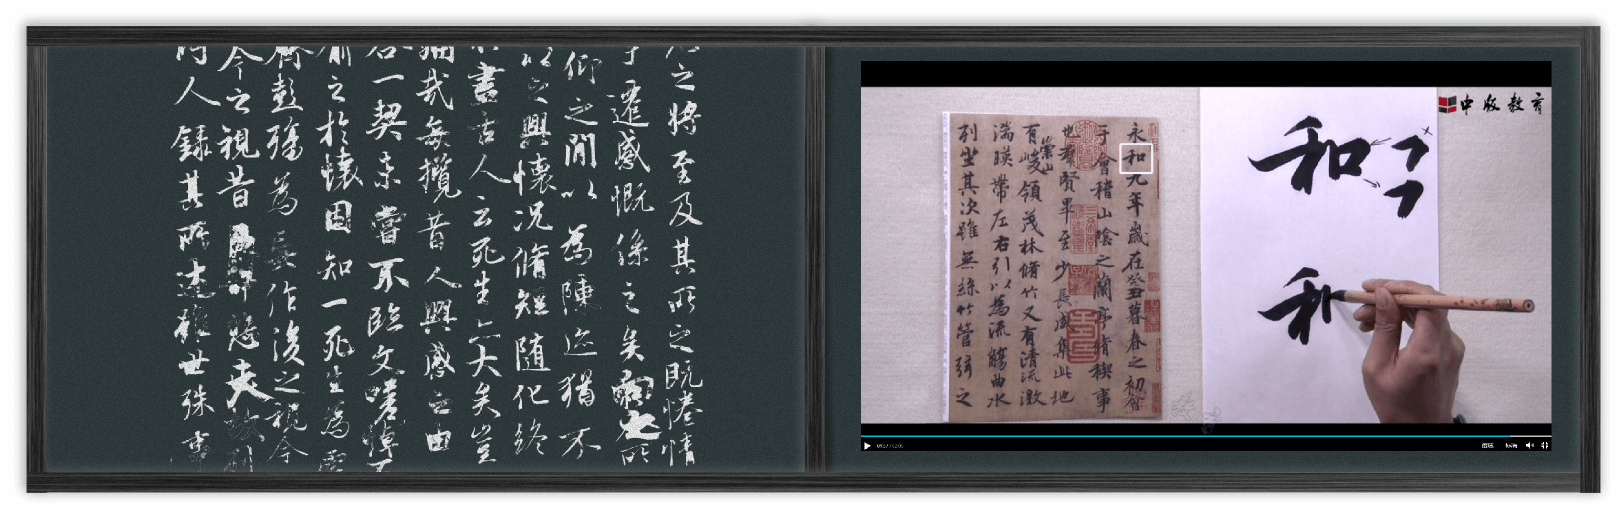 之將至及其所之既惓情
遷感慨係之矣向之所
仰之閒以為陳迹猶不
以之興懷況脩短隨化終
盡古人云死生亦大矣豈
痛哉每攬昔人興感之由
合一契未嘗不臨文嗟悼不
喻之於懷固知一死生為虛
齊彭殤為妄作後之視今
今之視昔悲夫故列
時人錄其所述雖世殊事
中版教育
永和九年歲在癸丑暮春之初會
于會稽山陰之蘭亭脩稧事
也羣賢畢至少長咸集此地
有崇山峻領茂林脩竹又有清流激
湍暎帶左右引以為流觴曲水
列坐其次雖無絲竹管弦之
和
和